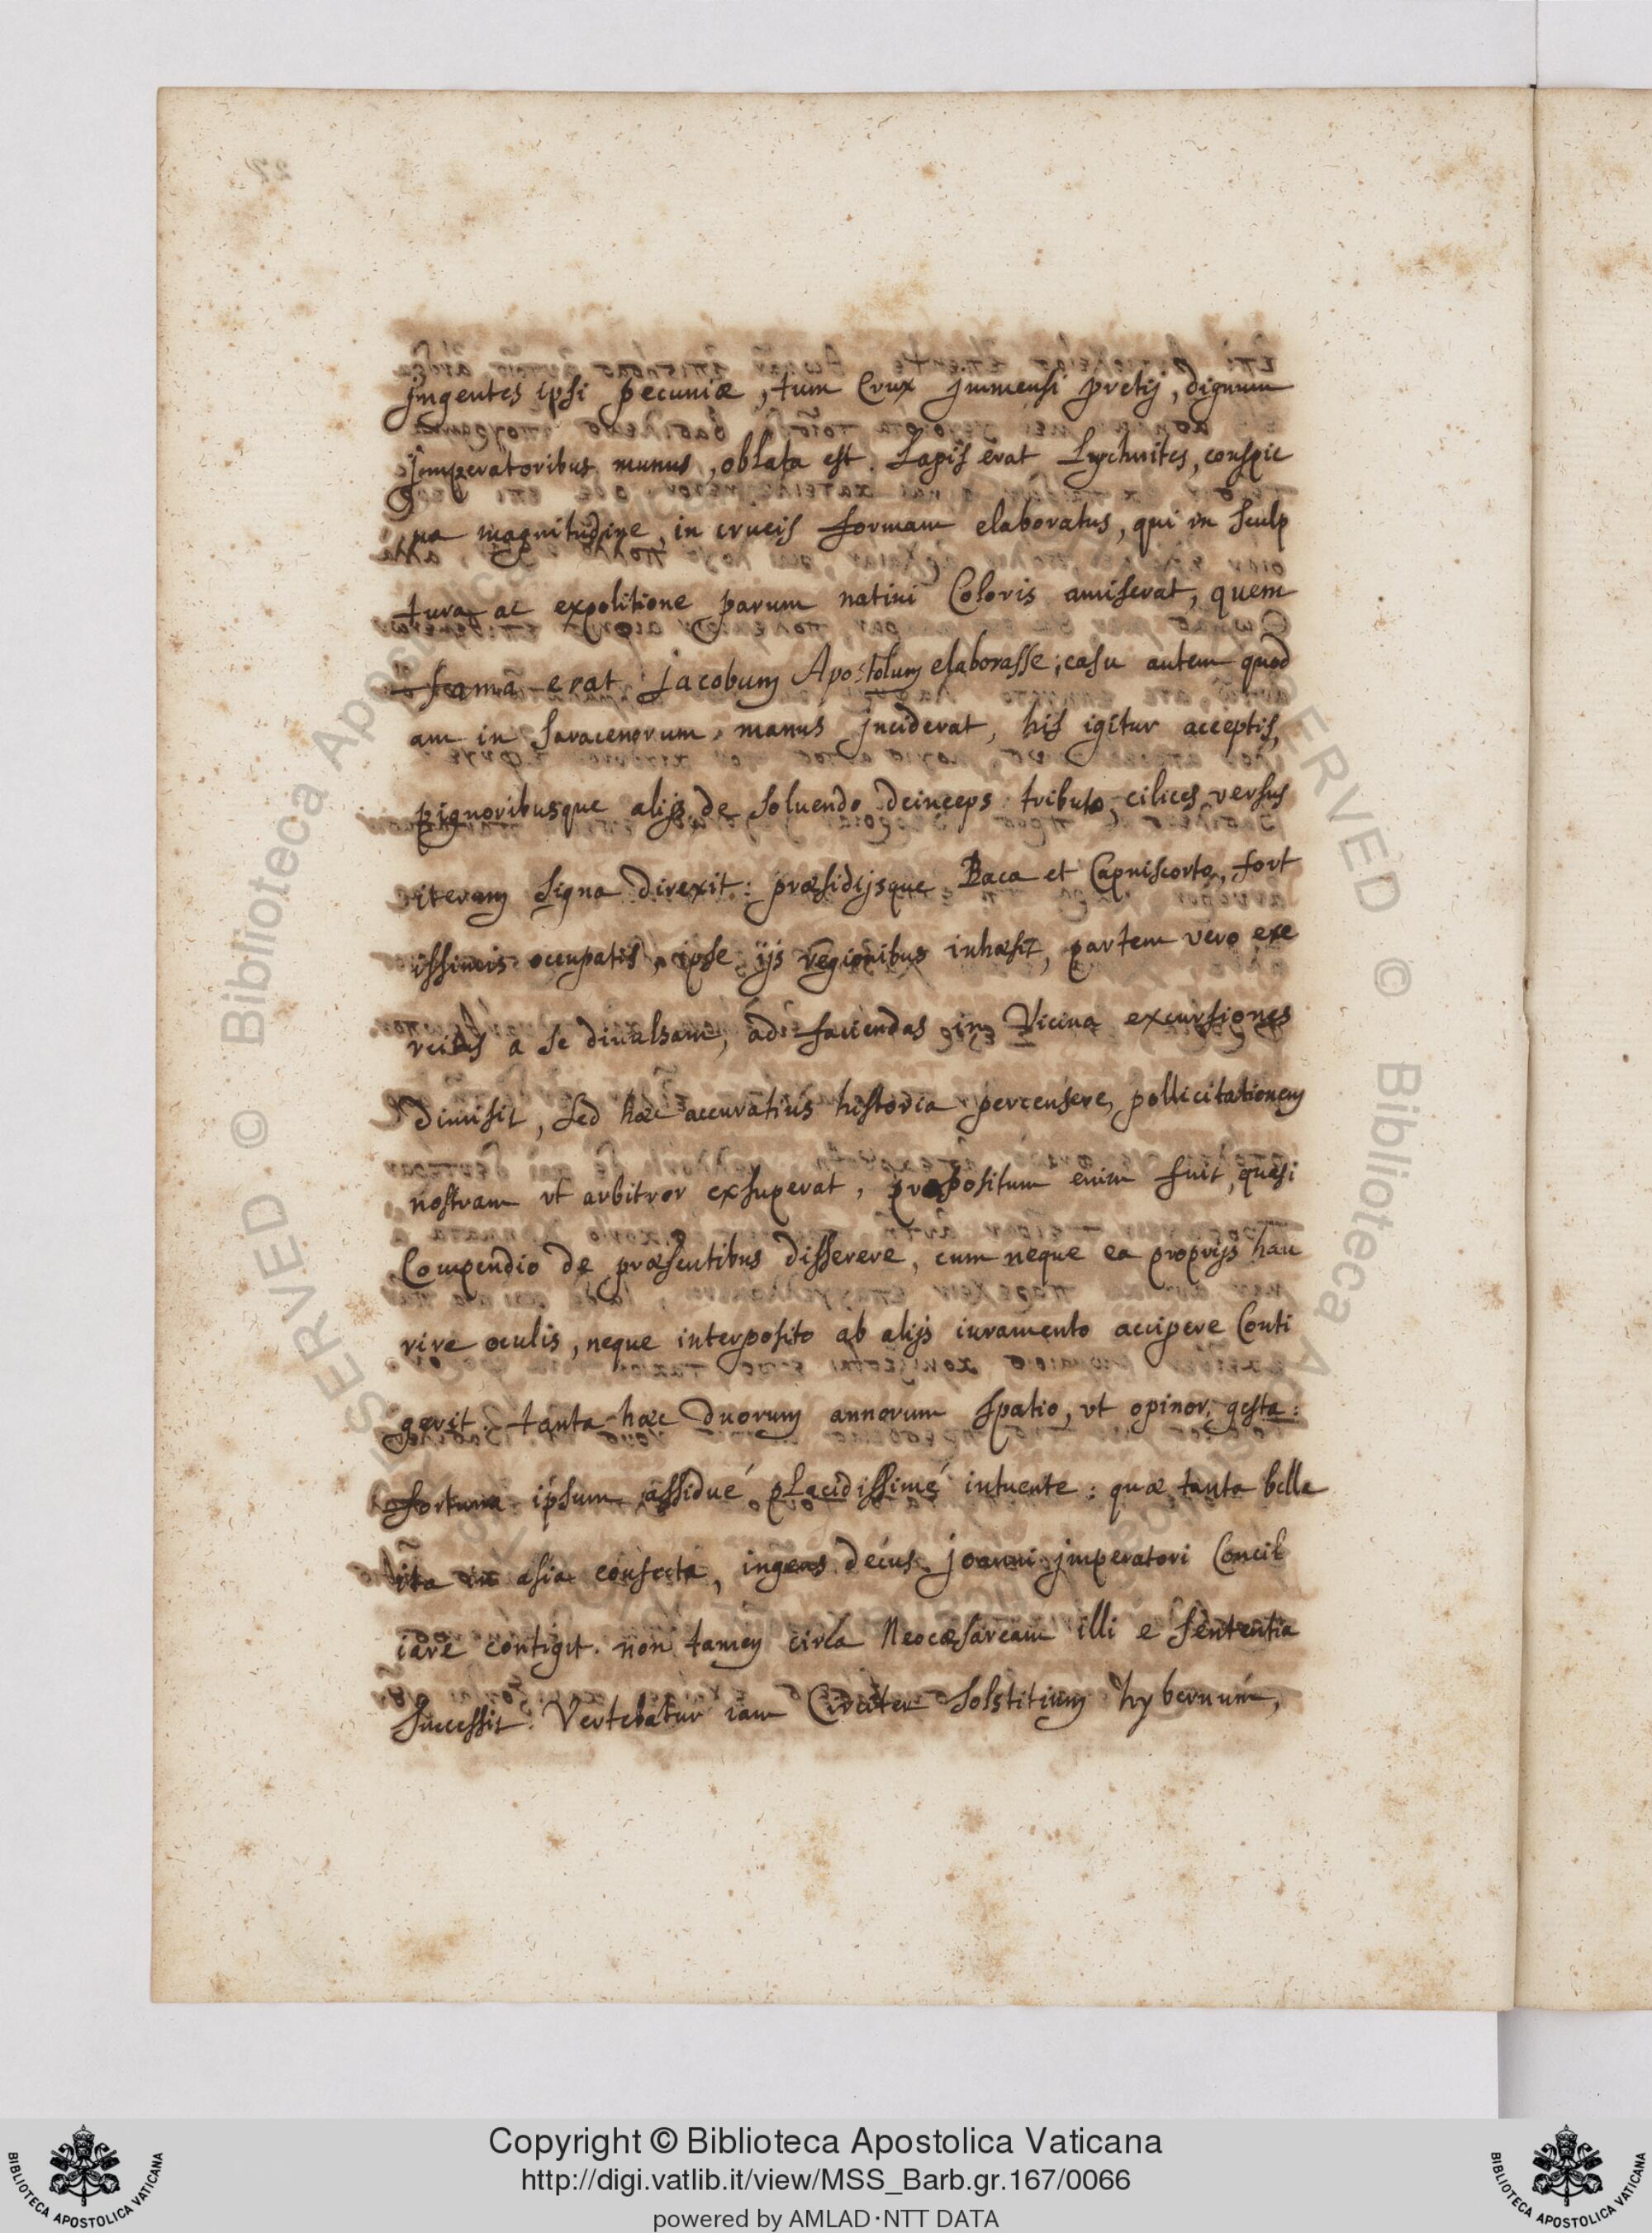 jngentes ipsi pecuniæ, tum Crux jmmensi pretij, dignum
jmperatoribus munus, oblata est. Lapis erat Lychnites, conspic
ua magnitudine, in crucis formam elaboratus, qui in sculp
tura ac expolitione parum natiui Coloris amiserat, quem
fama erat jacobum Apostolum elaborasse; casu autem quod
am in saracenorum manus jnciderat, his igitur acceptis,
pignoribusque alijs de soluendo deinceps tributo, cilices versus
iterum signa direxit: præsidijsque Baca et Capniscorto, fort
issimis occupatis, ipse ijs regionibus inhæsit, partem vero exe
rcitus a se diuulsam, ad faciendas in Vicina excursiones
dimisit, sed hæc accuratius historia percensere, pollicitationem
nostram vt arbitror exsuperat, propositum enim fuit, quasi
Compendio de præsentibus disserere, cum neque ea proprijs hau
rire oculis, neque interposito ab alijs iuramento accipere Conti
gerit. tanta hæc duorum annorum spatio, vt opinor, gesta:
fortuna ipsum assidué placidissimé intuente: quæ tanta belle
ita in asia confecta, ingens decus joanni jmperatori Concil
iare contigit. non tamen circa Neocæsaream illi e sententia
successit. Vertebatur iam Circiter solstitium hybernum,
Copyright © Biblioteca Apostolica Vaticana
http://digi.vatlib.it/view/MSS_Barb.gr.167/0066
powered by AMLAD·NTT DATA
BIBLIOTECA APOSTOLICA VATICANA
BIBLIOTECA APOSTOLICA VATICANA